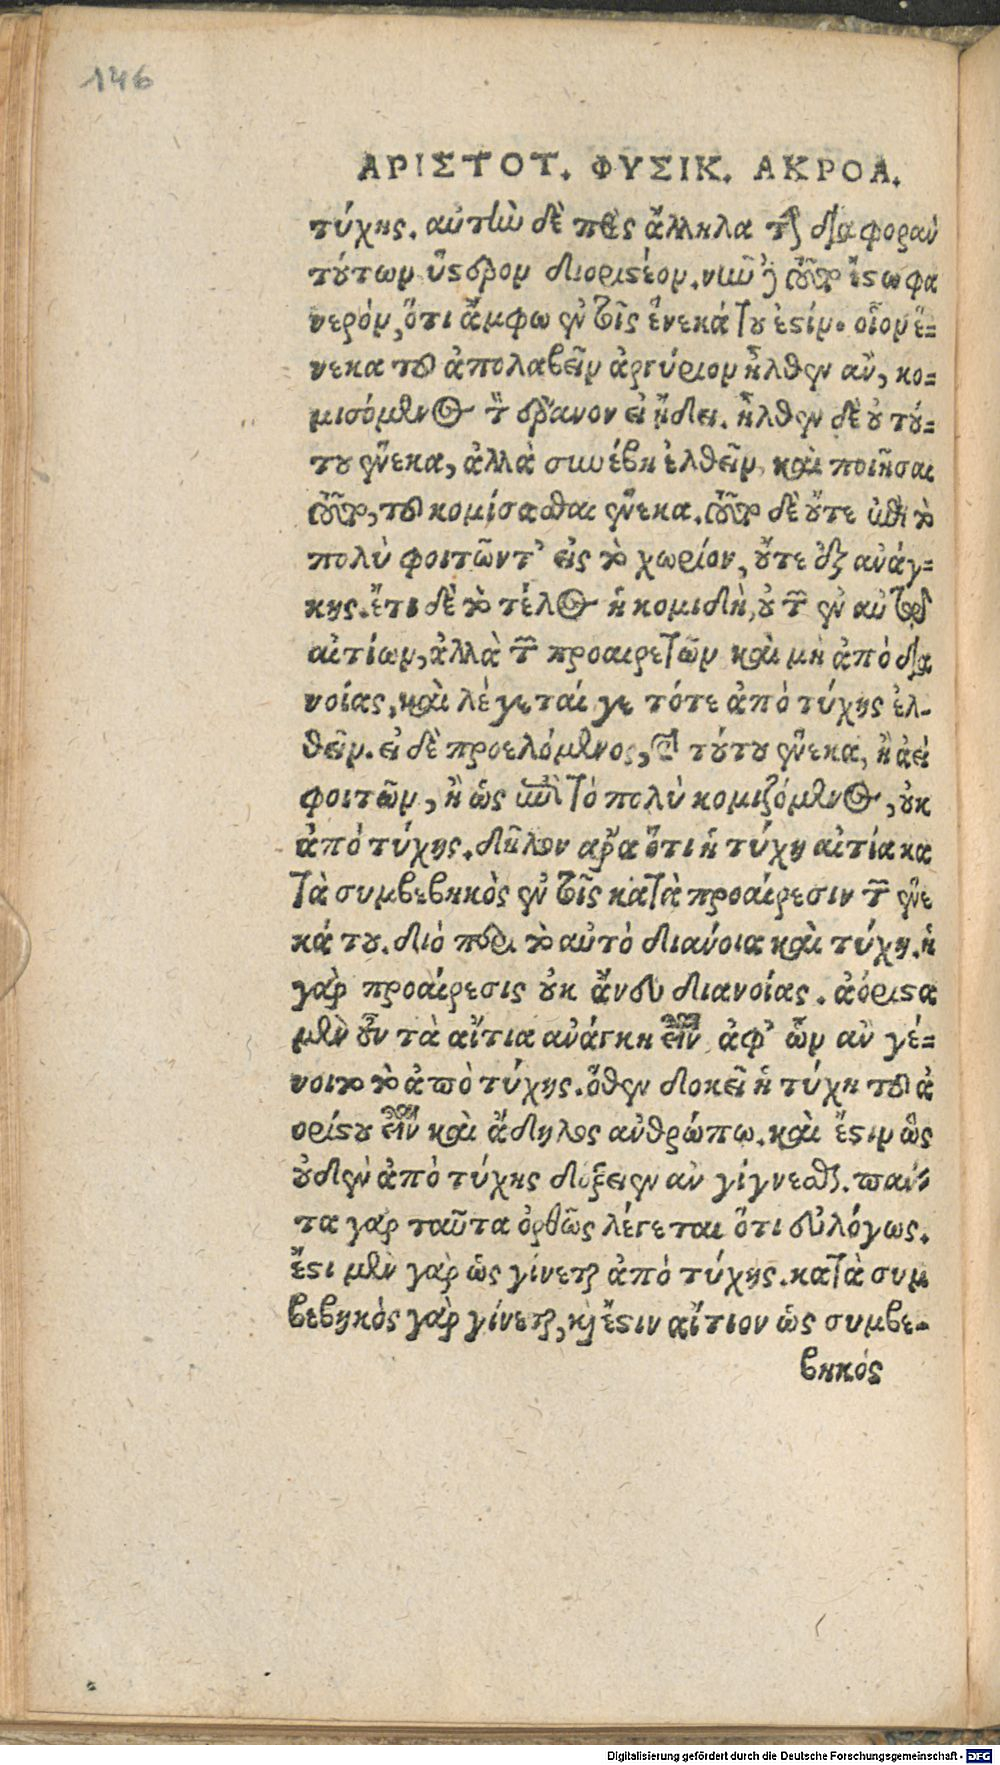 146
ΑΡΙΣΤΟΤ. ΦΥΣΙΚ. ΑΚΡΟΑ.
τύχης. αὐτὴν δὲ πρὸς ἄλληλα τὴν διαφορὰν
τούτων ὕστερον διοριστέον. νῦν δὲ τοῦτο ἔστω φα
νερόν, ὅτι ἄμφω ἐν τοῖς ἕνεκά του ἐστίν. οἷον ἕ-
νεκα τοῦ ἀπολαβεῖν ἀργύριον ἦλθεν ἂν, κο-
μισόμενος τὸν ἔρανον εἰ ᾔδει. ἦλθεν δὲ οὐ τού-
του ἕνεκα, ἀλλὰ συνέβη ἐλθεῖν, καὶ ποιῆσαι
τοῦτο, τοῦ κομίσασθαι ἕνεκα. τοῦτο δὲ οὔτε ὡς ἐπὶ τὸ
πολὺ φοιτῶντ' εἰς τὸ χωρίον, οὔτε ἐξ ἀνάγ-
κης. ἔτι δὲ τὸ τέλος ἡ κομιδὴ, οὐ τῶν ἐν αὐτῷ
αἰτίων, ἀλλὰ τῶν προαιρετῶν καὶ μὴ ἀπὸ δια
νοίας, καὶ λέγεταί γε τότε ἀπὸ τύχης ἐλ-
θεῖν. εἰ δὲ προελόμενος, καὶ τούτου ἕνεκα, ἢ ἀεὶ
φοιτῶν, ἢ ὡς ἐπὶ τὸ πολὺ κομιζόμενος, οὐκ
ἀπὸ τύχης. δῆλον ἄρα ὅτι ἡ τύχη αἰτία κα
τὰ συμβεβηκὸς ἐν τοῖς κατὰ προαίρεσιν τῶν ἕνε
κά του. διὸ περὶ τὸ αὐτὸ διάνοια καὶ τύχη. ἡ
γὰρ προαίρεσις οὐκ ἄνευ διανοίας. ἀόριστα
μὲν οὖν τὰ αἴτια ἀνάγκη εἶναι ἀφ' ὧν ἂν γέ-
νοιτο τὸ ἀπὸ τύχης. ὅθεν δοκεῖ ἡ τύχη τοῦ ἀ
ορίστου εἶναι καὶ ἄδηλος ἀνθρώπω. καὶ ἔστιν ὡς
οὐδὲν ἀπὸ τύχης δόξειεν ἂν γίγνεσθαι. πάν-
τα γὰρ ταῦτα ὀρθῶς λέγεται ὅτι εὐλόγως.
ἔστι μὲν γὰρ ὡς γίνεται ἀπὸ τύχης. κατὰ συμ
βεβηκός γὰρ γίνεται, καὶ ἔστιν αἴτιον ὡς συμβε-
βηκός
Digitalisierung gefördert durch die Deutsche Forschungsgemeinschaft - DFG